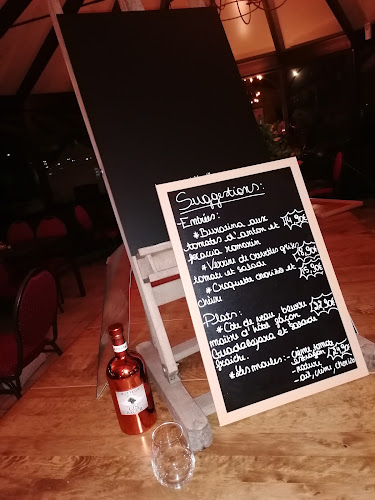 Suggestions:
- Entrées:
* Burratina aux
tomates d'antan et
focacia romarin 14,90€
* Verrine de crevettes grises
tomate et salade
* Croquette chorizo et
chèvre 15,90€
Plats:
* Côte de veau, beurre
maître d'hôtel façon
Guadalajara et salade
fraîche.
* Les moules: - Crème tomate
estragon
- nature
- ail, crème, chorizo